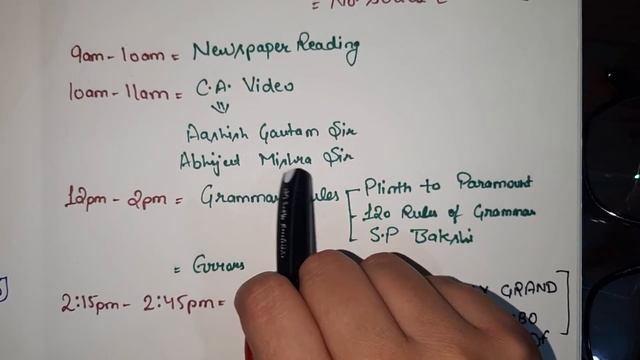 9am - 10am = Newspaper Reading
10am - 11am = C.A. Video
Aashish Gautam Sir
Abhijeet Mishra Sir
12pm - 2pm = Grammar Rules
Plinth to Paramount
120 Rules of Grammar
S.P Bakshi
= Errors
2:15pm - 2:45pm =
GRAND